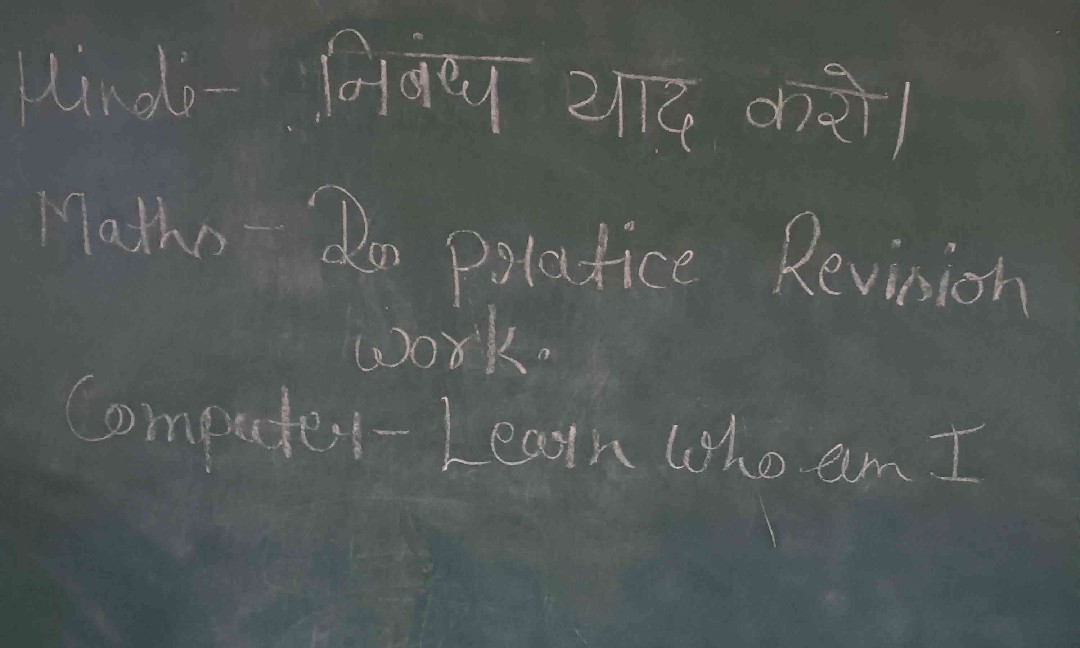 Hindi- निबंध याद करो।
Maths- Do pratice Revision
work.
Computer- Learn Who am I